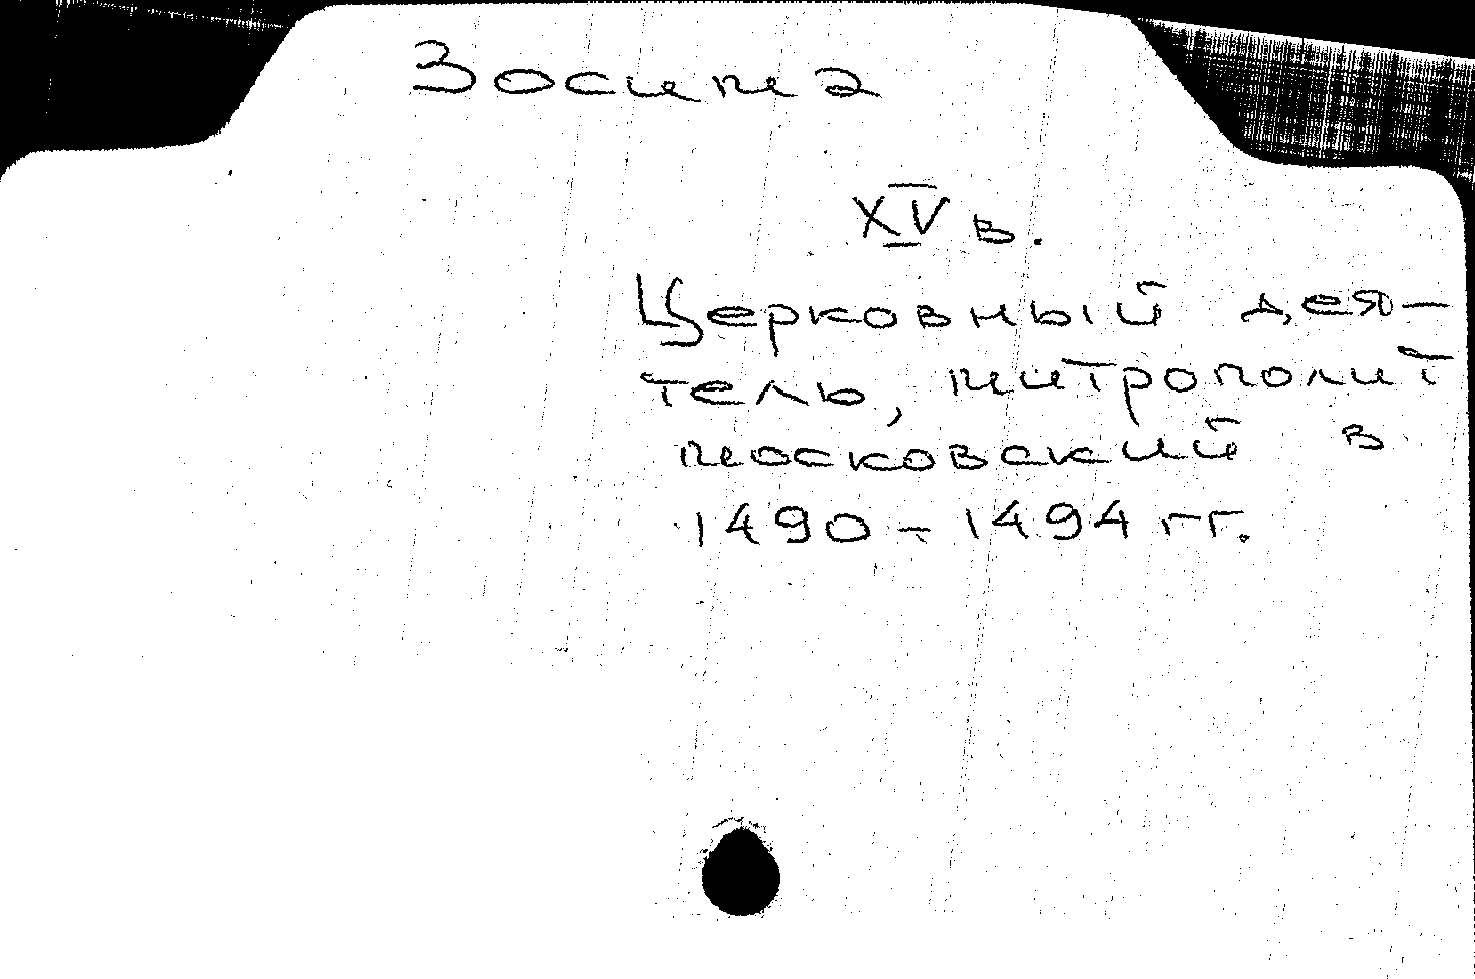 Зосима
XV в.
Церковный дея-
тель, митрополит
московский в
1490-1494 гг.